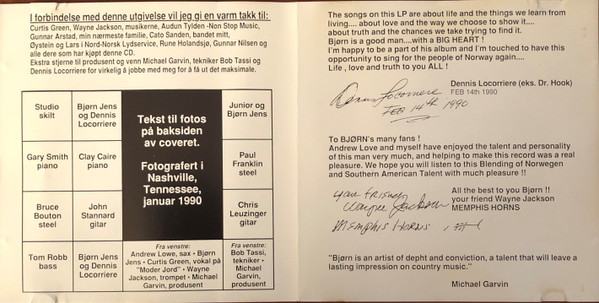 I forbindelse med denne utgivelse vil jeg gi en varm takk til:
Curtis Green, Wayne Jackson, musikerne, Audun Tylden -Non Stop Music,
Gunnar Arstad, min nærmeste familie, Cato Sanden, bandet mitt,
Øystein og Lars i Nord-Norsk Lydservice, Rune Holandsjo, Gunnar Nilsen og
alle dere som har kjøpt denne CD.
Ekstra stjerne til produsent og venn Michael Garvin, tekniker Bob Tassi og
Dennis Locorriere for virkelig å jobbe med meg for å få ut det maksimale.
Studio
skilt
Bjørn Jens
og Dennis
Locorriere
Tekst til fotos
på baksiden
av coveret.
Fotografert i
Nashville,
Tennessee,
januar 1990
Junior og
Bjørn Jens
Gary Smith
piano
Clay Caire
piano
Paul
Franklin
steel
Bruce
Bouton
steel
John
Stannard
gitar
Chris
Leuzinger
gitar
Tom Robb
bass
Bjørn Jens
og Dennis
Locorriere
Fra venstre:
Andrew Lowe, sax • Bjørn
Jens • Curtis Green, vokal på
"Moder Jord" • Wayne
Jackson, trompet • Michael
Garvin, produsent
Fra venstre:
Bob Tassi,
tekniker •
Michael
Garvin,
produsent
The songs on this LP are about life and the things we learn from
living.... about love and the way we choose to show it....
about truth and the chances we take trying to find it.
Bjørn is a good man....with a BIG HEART !
I'm happy to be a part of his album and I'm touched to have this
opportunity to sing for the people of Norway again....
Life , love and truth to you ALL !
Dennis Locorriere (eks. Dr. Hook)
FEB 14th 1990
Dennis Locorriere
FEB 14th 1990
To BJØRN's many fans !
Andrew Love and myself have enjoyed the talent and personality
of this man very much, and helping to make this record was a real
pleasure. We hope you will listen to this Blending of Norwegen
and Southern American Talent with much pleasure !!
All the best to you Bjørn !!
your friend Wayne Jackson
MEMPHIS HORNS
your friend
Wayne Jackson
Memphis Horns
"Bjørn is an artist of depht and conviction, a talent that will leave a
lasting impression on country music."
Michael Garvin